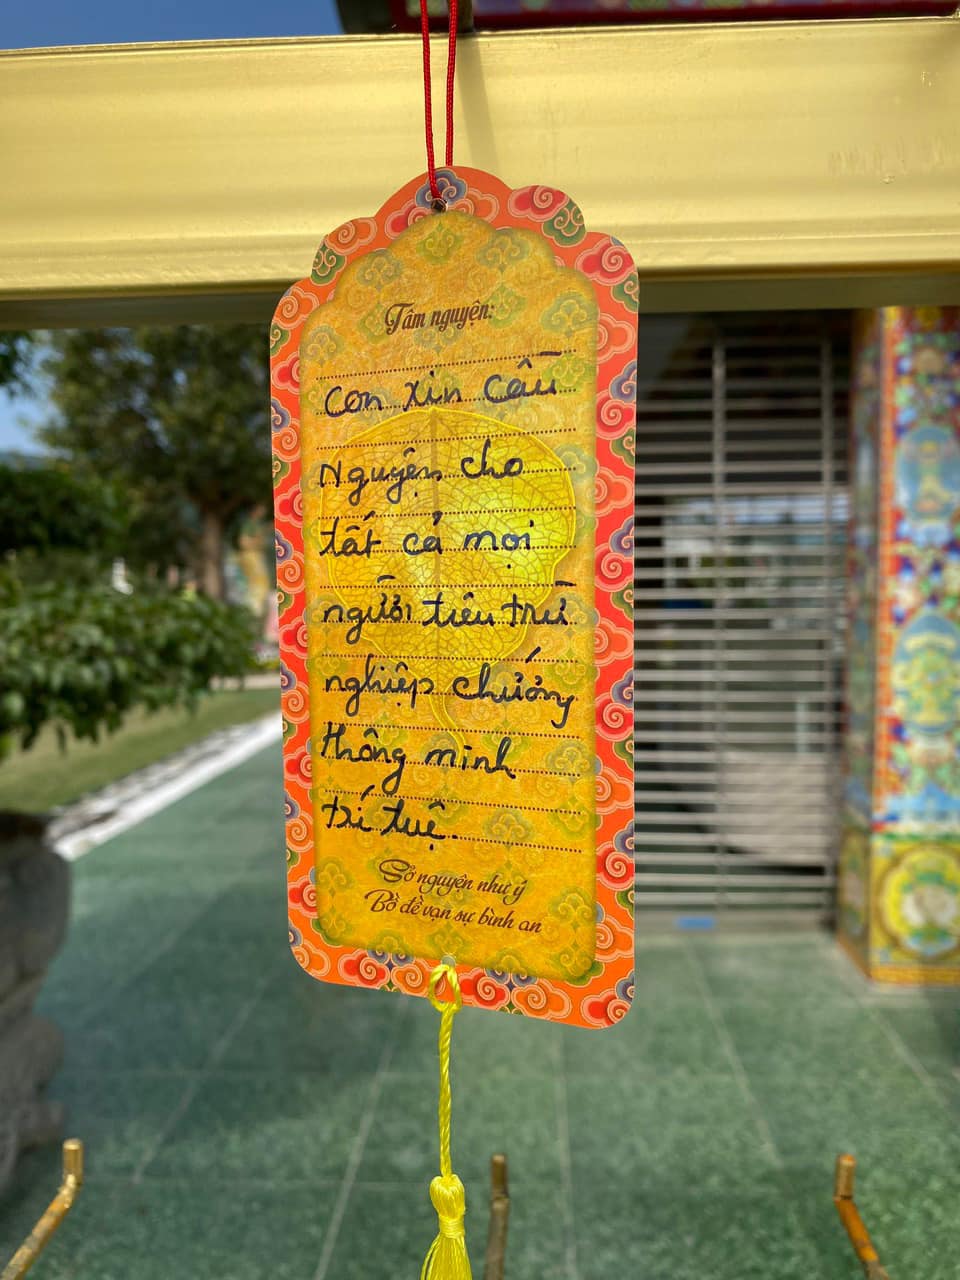 Tâm nguyện:
Con xin cầu
Nguyện cho
tất cả mọi
người tiêu trừ
nghiệp chướng
thông minh
trí tuệ.
Sở nguyện như ý
Bồ đề vạn sự bình an